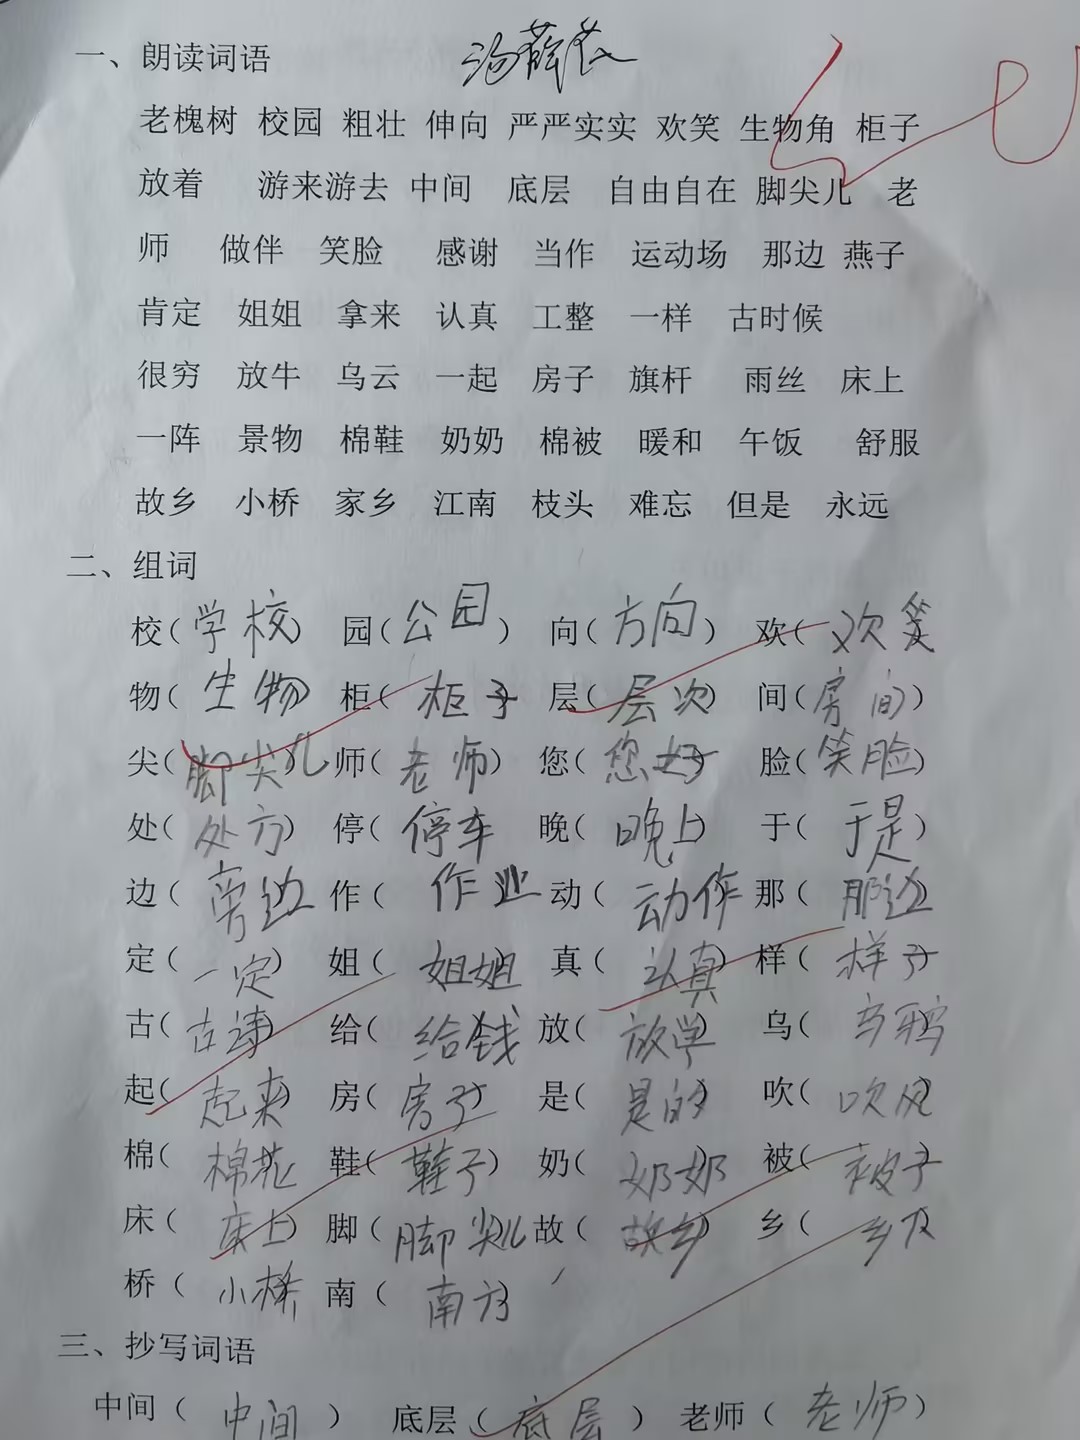 一、朗读词语
老槐树 校园 粗壮 伸向 严严实实 欢笑 生物角 柜子
放着 游来游去 中间 底层 自由自在 脚尖儿 老
师 做伴 笑脸 感谢 当作 运动场 那边 燕子
肯定 姐姐 拿来 认真 工整 一样 古时候
很穷 放牛 乌云 一起 房子 旗杆 雨丝 床上
一阵 景物 棉鞋 奶奶 棉被 暖和 午饭 舒服
故乡 小桥 家乡 江南 枝头 难忘 但是 永远
二、组词
校(学校) 园(公园) 向(方向) 欢(欢笑
物(生物) 柜(柜子 层(层次) 间(房间)
尖(脚尖儿 师(老师) 您(您好 脸(笑脸)
处(处方) 停(停车 晚(晚上) 于(于是)
边(旁边 作(作业 动(动作 那(那边
定(一定) 姐(姐姐 真(认真 样(样子
古(古诗) 给(给钱 放(放学 乌(乌鸦
起(起来) 房(房子 是(是的 吹(吹风
棉(棉花 鞋(鞋子) 奶(奶奶 被(被子
床(床上) 脚(脚尖儿 故(故乡) 乡(乡下
桥(小桥 南(南方
三、抄写词语
中间(中间) 底层(底层) 老师(老师)